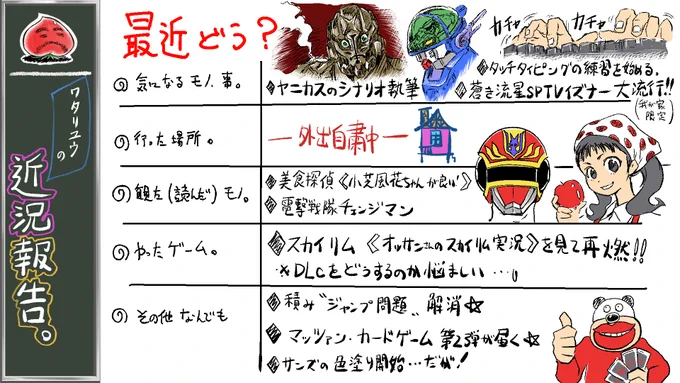 ワタリユウ
の
近況報告。
最近どう?
カチャ
カチャ
の 気になるモノ、事。
◆ヤニカスのシナリオ執筆
◆タッチタイピングの練習を始める。
◆蒼き流星SPTレイズナー大流行!!
(我が家限定)
の 行った場所。
ー外出自粛中ー
の 観た(読んだ)モノ。
◆美食探偵《小芝風花ちゃんが良い》
◆電撃戦隊チェンジマン
の やったゲーム。
◆スカイリム《オッサンさんのスカイリム実況》を見て再燃!!
※DLCをどうするのか悩ましい…。
の その他なんでも
◆積み〝ジャンプ問題〟解消☆
◆マッツァン・カードゲーム 第2弾が届く☆
◆サンズの色塗り開始…だが!